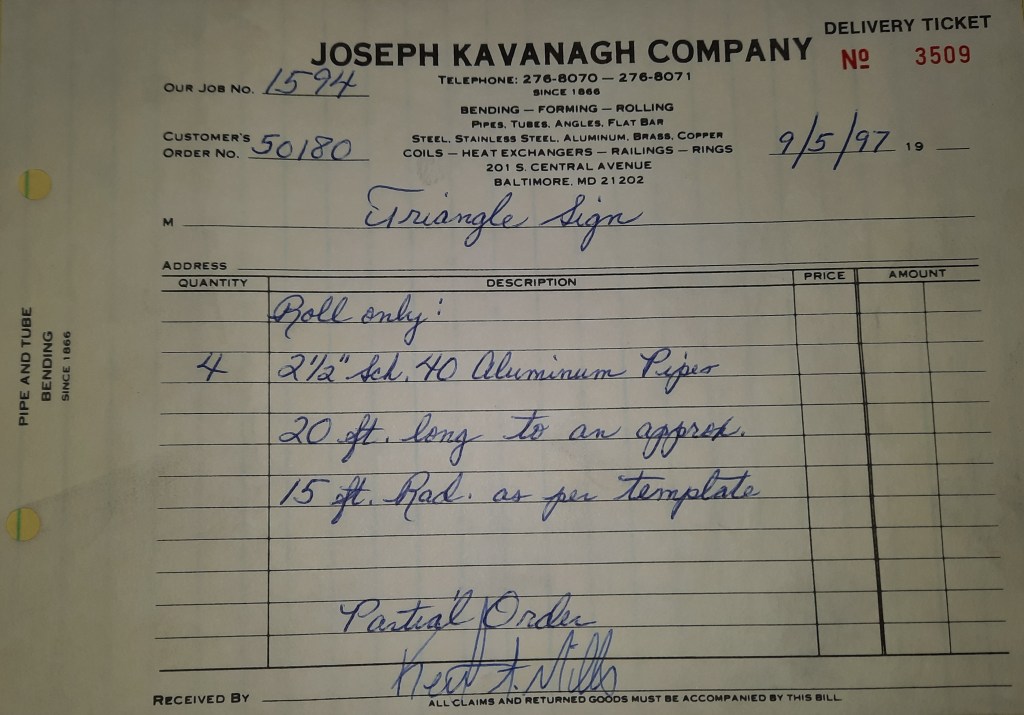 DELIVERY TICKET
JOSEPH KAVANAGH COMPANY
Nº 3509
OUR JOB NO. 1594
TELEPHONE: 276-8070 — 276-8071
SINCE 1866
BENDING — FORMING — ROLLING
PIPES, TUBES, ANGLES, FLAT BAR
CUSTOMER'S ORDER NO. 50180
STEEL, STAINLESS STEEL, ALUMINUM, BRASS, COPPER
COILS — HEAT EXCHANGERS — RAILINGS — RINGS
9/5/97 19
201 S. CENTRAL AVENUE
BALTIMORE, MD 21202
M Triangle Sign
ADDRESS
QUANTITY DESCRIPTION PRICE AMOUNT
Roll only:
4 2 1/2" Sch. 40 Aluminum Pipes
20 ft. long to an approx.
15 ft. Rad. as per template
Partial Order
RECEIVED BY
ALL CLAIMS AND RETURNED GOODS MUST BE ACCOMPANIED BY THIS BILL.
PIPE AND TUBE
BENDING
SINCE 1866